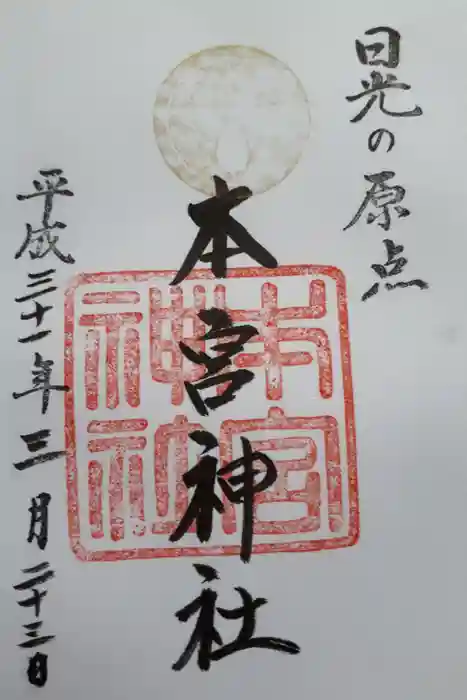 日光の原点
本宮神社
平成三十一年三月二十三日
本宮
神社